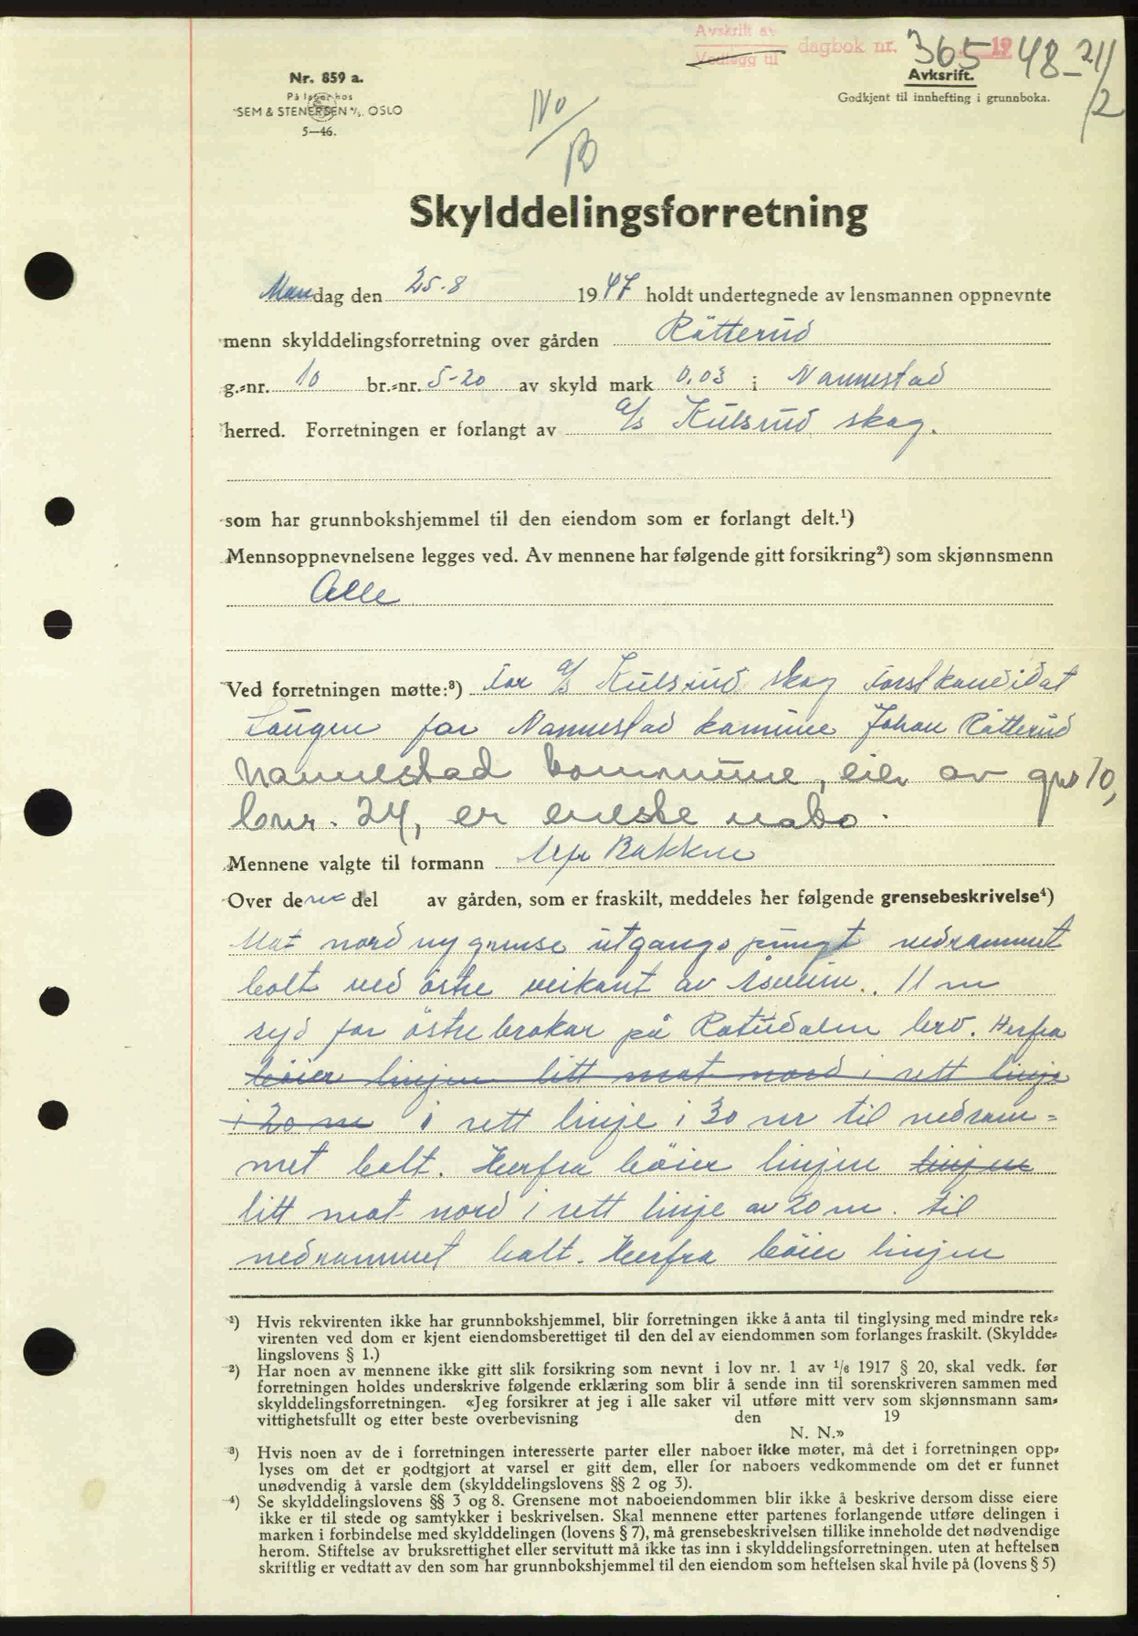 Avskrift av
Vedlegg til dagbok nr. 365 1948-21/2
Nr. 859 a.
På lager hos
SEM & STENERSEN A/S, OSLO
5—46.
Avksrift.
Godkjent til innhefting i grunnboka.
No/B
Skylddelingsforretning
Mandag den 25-8 1947 holdt undertegnede av lensmannen oppnevnte
menn skylddelingsforretning over gården Rätterud
g.-nr. 10 br.-nr. 5-20 av skyld mark 0.03 i Nannestad
herred. Forretningen er forlangt av a/s Kulsrud skog.
som har grunnbokshjemmel til den eiendom som er forlangt delt.¹)
Mennsoppnevnelsene legges ved. Av mennene har følgende gitt forsikring²) som skjønnsmenn
Alle
Ved forretningen møtte:³) For a/s Kulsrud skog forstkandidat
Laugen for Nannestad komune Johan Rätterud
Nannestad kommune, eier av gnr 10,
bnr. 24, er eneste nabo.
Mennene valgte til formann Alfr Bakken
Over denne del av gården, som er fraskilt, meddeles her følgende grensebeskrivelse⁴)
Mot nord ny grense utgangspungt nedrammet
bolt ved östre veikant av Åsveien. 11 m
syd for östre brokar på Ratudalen bro. Herfra
böier linjen litt mot nord i rett linje
i 20 m i rett linje i 30 m til nedram-
met bolt. Herfra böier linjen linjen
litt mot nord i rett linje av 20 m. til
nedrammet bolt. Herfra böier linjen
¹) Hvis rekvirenten ikke har grunnbokshjemmel, blir forretningen ikke å anta til tinglysing med mindre rek-
virenten ved dom er kjent eiendomsberettiget til den del av eiendommen som forlanges fraskilt. (Skyldde-
lingslovens § 1.)
²) Har noen av mennene ikke gitt slik forsikring som nevnt i lov nr. 1 av 1/6 1917 § 20, skal vedk. før
forretningen holdes underskrive følgende erklæring som blir å sende inn til sorenskriveren sammen med
skylddelingsforretningen. «Jeg forsikrer at jeg i alle saker vil utføre mitt verv som skjønnsmann sam-
vittighetsfullt og etter beste overbevisning den 19
N. N.»
³) Hvis noen av de i forretningen interesserte parter eller naboer ikke møter, må det i forretningen opp-
lyses om det er godtgjort at varsel er gitt dem, eller for naboers vedkommende om det er funnet
unødvendig å varsle dem (skylddelingslovens §§ 2 og 3).
⁴) Se skylddelingslovens §§ 3 og 8. Grensene mot naboeiendommen blir ikke å beskrive dersom disse eiere
ikke er til stede og samtykker i beskrivelsen. Skal mennene etter partenes forlangende utføre delingen i
marken i forbindelse med skylddelingen (lovens § 7), må grensebeskrivelsen tillike inneholde det nødvendige
herom. Stiftelse av bruksrettighet eller servitutt må ikke tas inn i skylddelingsforretningen. uten at heftelsen
skriftlig er vedtatt av den som har grunnbokshjemmel til den eiendom som heftelsen skal hvile på (lovens § 5)